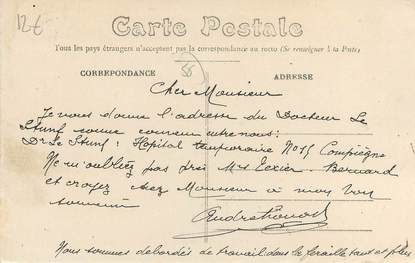 12€
Carte Postale
Tous les pays étrangers n'acceptent pas la correspondance au recto (Se renseigner à la Poste)
55
CORRESPONDANCE
ADRESSE
Cher Monsieur
Je vous donne l'adresse du Docteur Le
comme convenu entre nous:
Dr Le : Hôpital temporaire No 15 Compiègne
Ne m'oubliez pas près Mrs Texier. Bernard
et croyez cher Monsieur à mon bon
souvenir
Nous sommes débordés de travail dans la feraille tant et plus